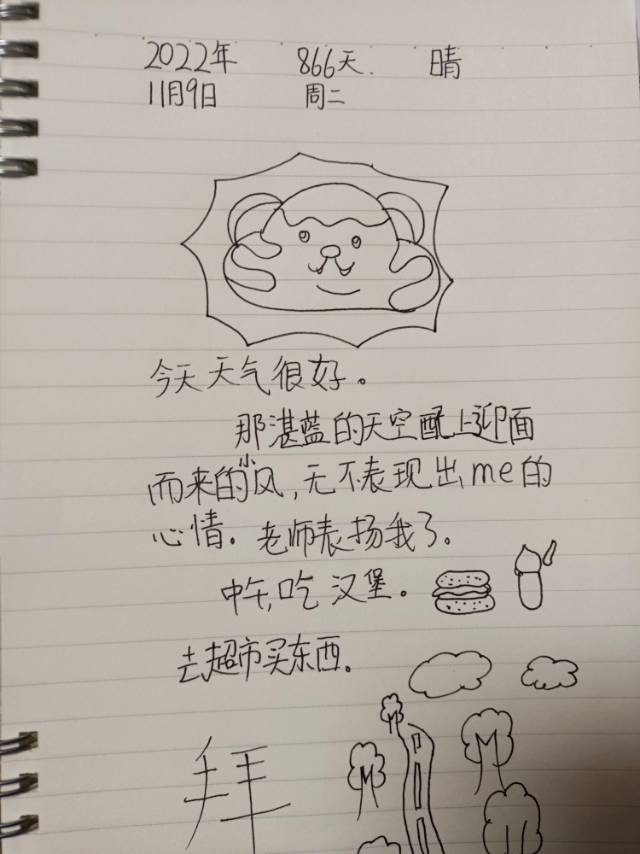 2022年 866天. 晴
11月9日 周二
今天天气很好。
那湛蓝的天空配上迎面
而来的小风,无不表现出me的
心情。老师表扬我了。
中午,吃汉堡。
去超市买东西。
拜